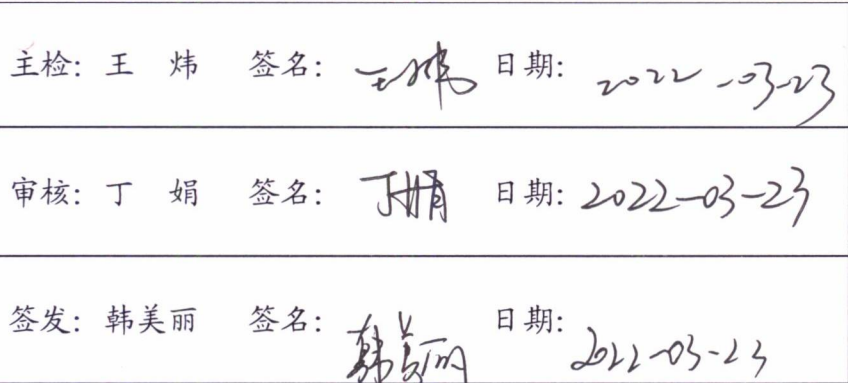 主检：王 炜 签名：王炜 日期：2022-03-23
审核：丁 娟 签名：丁娟 日期：2022-03-23
签发：韩美丽 签名：韩美丽 日期：2022-03-23